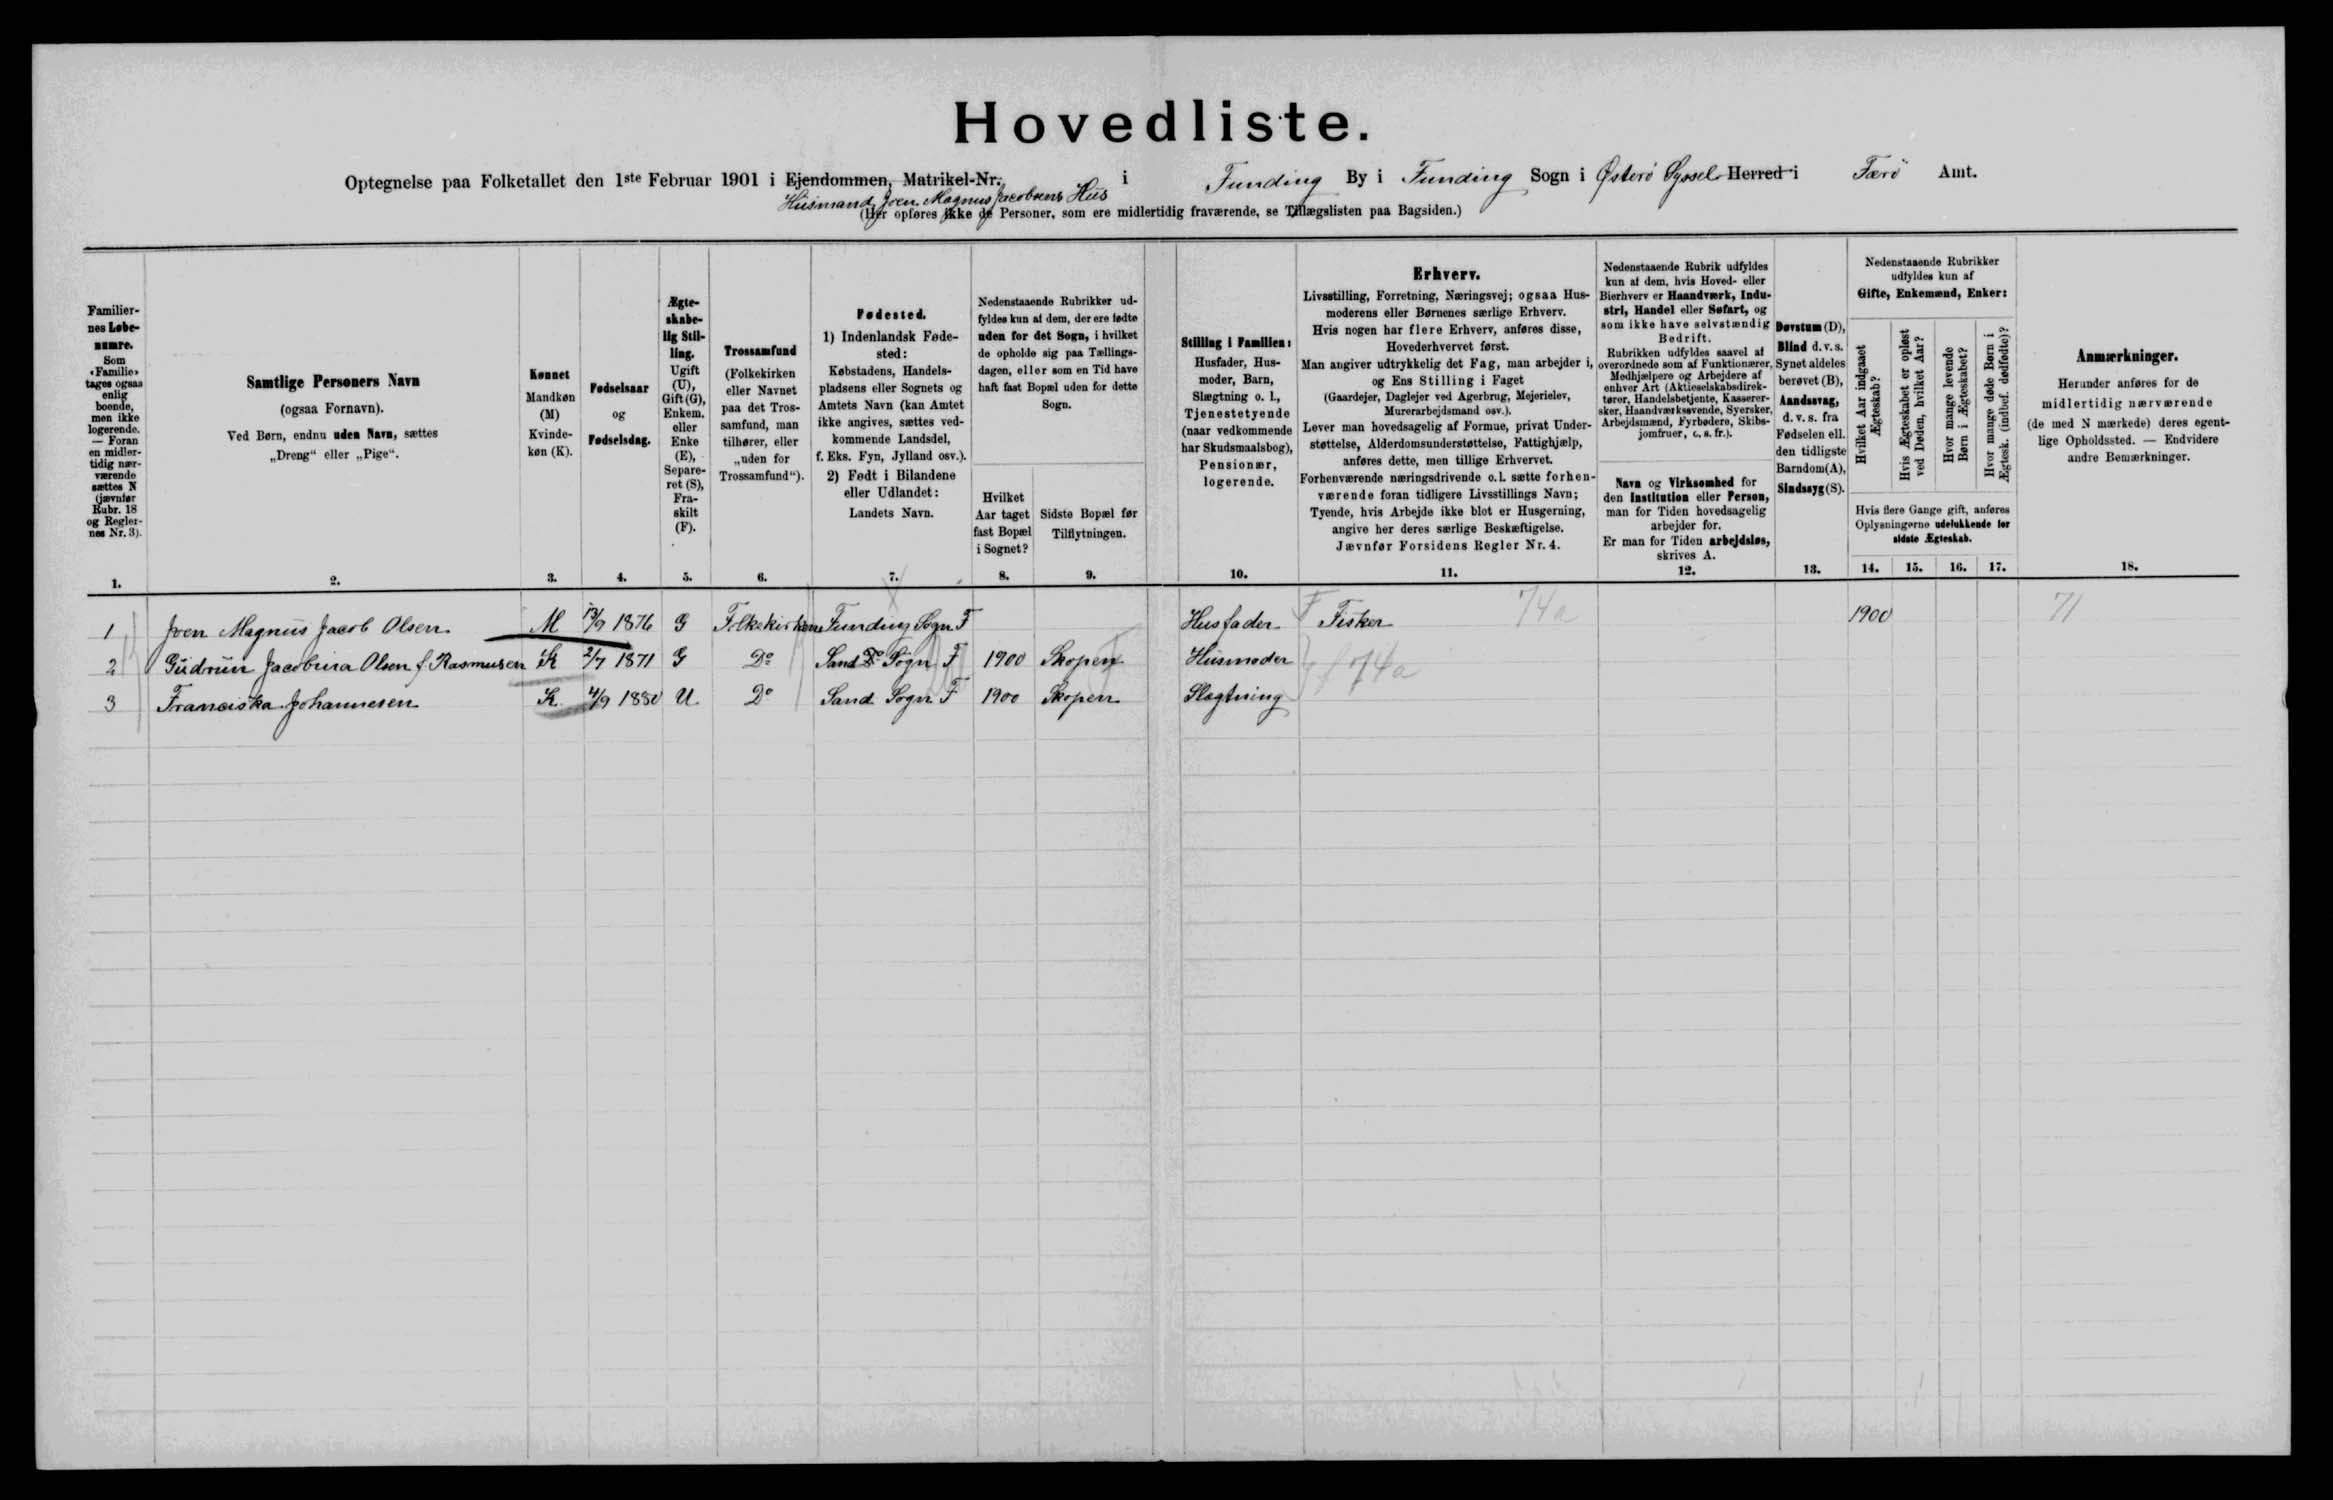 Hovedliste.
Optegnelse paa Folketallet den 1ste Februar 1901 i Ejendommen, Matrikel-Nr. i Funding By i Funding Sogn i Østerö Syssel Herred i Færö Amt.
Husmand Joen Magnus Jacobsens Hus
(Her opføres ikke de Personer, som ere midlertidig fraværende, se Tillægslisten paa Bagsiden.)
Familiernes Løbenumre.
Som «Familie» tages ogsaa enlig boende, men ikke logerende. — Foran en midlertidig nærværende sættes N (jævnfør Rubr. 18 og Reglernes Nr. 3).
1.
Samtlige Personers Navn
(ogsaa Fornavn).
Ved Børn, endnu uden Navn, sættes
„Dreng“ eller „Pige“.
2.
Kønnet
Mandkøn (M)
Kvindekøn (K).
3.
Fødselsaar
og
Fødselsdag.
4.
Ægteskabelig Stilling.
Ugift (U), Gift (G), Enkem. eller Enke (E), Separeret (S), Fraskilt (F).
5.
Trossamfund
(Folkekirken eller Navnet paa det Trossamfund, man tilhører, eller „uden for Trossamfund“).
6.
Fødested.
1) Indenlandsk Fødested:
Købstadens, Handelspladsens eller Sognets og Amtets Navn (kan Amtet ikke angives, sættes vedkommende Landsdel, f. Eks. Fyn, Jylland osv.).
2) Født i Bilandene eller Udlandet:
Landets Navn.
7.
Nedenstaaende Rubrikker udfyldes kun af dem, der ere fødte uden for det Sogn, i hvilket de opholde sig paa Tællingsdagen, eller som en Tid have haft fast Bopæl uden for dette Sogn.
Hvilket Aar taget fast Bopæl i Sognet?
8.
Sidste Bopæl før Tilflytningen.
9.
Stilling i Familien:
Husfader, Husmoder, Barn, Slægtning o. l., Tjenestetyende (naar vedkommende har Skudsmaalsbog), Pensionær, logerende.
10.
Erhverv.
Livsstilling, Forretning, Næringsvej; ogsaa Husmoderens eller Børnenes særlige Erhverv.
Hvis nogen har flere Erhverv, anføres disse, Hovederhvervet først.
Man angiver udtrykkelig det Fag, man arbejder i, og Ens Stilling i Faget
(Gaardejer, Daglejer ved Agerbrug, Mejerielev, Murerarbejdsmand osv.).
Lever man hovedsagelig af Formue, privat Understøttelse, Alderdomsunderstøttelse, Fattighjælp, anføres dette, men tillige Erhvervet.
Forhenværende næringsdrivende o. l. sætte forhenværende foran tidligere Livsstillings Navn;
Tyende, hvis Arbejde ikke blot er Husgerning, angive her deres særlige Beskæftigelse.
Jævnfør Forsidens Regler Nr. 4.
11.
Nedenstaaende Rubrik udfyldes kun af dem, hvis Hoved- eller Bierhverv er Haandværk, Industri, Handel eller Søfart, og som ikke have selvstændig Bedrift.
Rubrikken udfyldes saavel af overordnede som af Funktionærer, Medhjælpere og Arbejdere af enhver Art (Aktieselskabsdirektører, Handelsbetjente, Kasserersker, Haandværkssvende, Syersker, Arbejdsmænd, Fyrbødere, Skibsjomfruer, o. s. fr.).
Navn og Virksomhed for den Institution eller Person, man for Tiden hovedsagelig arbejder for.
Er man for Tiden arbejdsløs, skrives A.
12.
Døvstum (D), Blind d. v. s. Synet aldeles berøvet (B), Aandssvag, d. v. s. fra Fødselen ell. den tidligste Barndom (A), Sindssyg (S).
13.
Nedenstaaende Rubrikker udfyldes kun af
Gifte, Enkemænd, Enker:
Hvilket Aar indgaaet Ægteskab?
Hvis Ægteskabet er opløst ved Døden, hvilket Aar?
Hvor mange levende Børn i Ægteskabet?
Hvor mange døde Børn i Ægtesk. (indbef. dødfødte)?
Hvis flere Gange gift, anføres Oplysningerne udelukkende for sidste Ægteskab.
14. 15. 16. 17.
Anmærkninger.
Herunder anføres for de midlertidig nærværende (de med N mærkede) deres egentlige Opholdssted. — Endvidere andre Bemærkninger.
18.
1 Joen Magnus Jacob Olsen M 13/9 1876 G Folkekirken Funding Sogn F Husfader F Fisker 74a 1900 71
2 Gudrun Jacobina Olsen f. Rasmusen K 2/7 1871 G Do Sand Sogn F 1900 Skopen Husmoder f 74a
3 Franciska Johannesen K 4/9 1880 U Do Sand Sogn F 1900 Skopen Slægtning